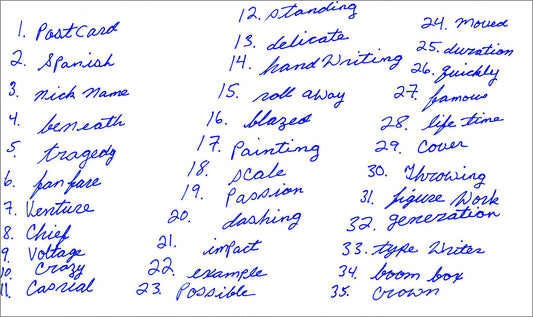 1. Postcard
2. Spanish
3. nick name
4. beneath
5. tragedy
6. fan fare
7. Venture
8. Chief
9. Voltage
10. Crazy
11. Casual
12. standing
13. delicate
14. hand Writing
15. roll away
16. blazed
17. Painting
18. scale
19. Passion
20. dashing
21. impact
22. example
23. Possible
24. Moved
25. duration
26. quickly
27. famous
28. life time
29. Cover
30. Throwing
31. figure Work
32. generation
33. type Writer
34. boom box
35. Crown